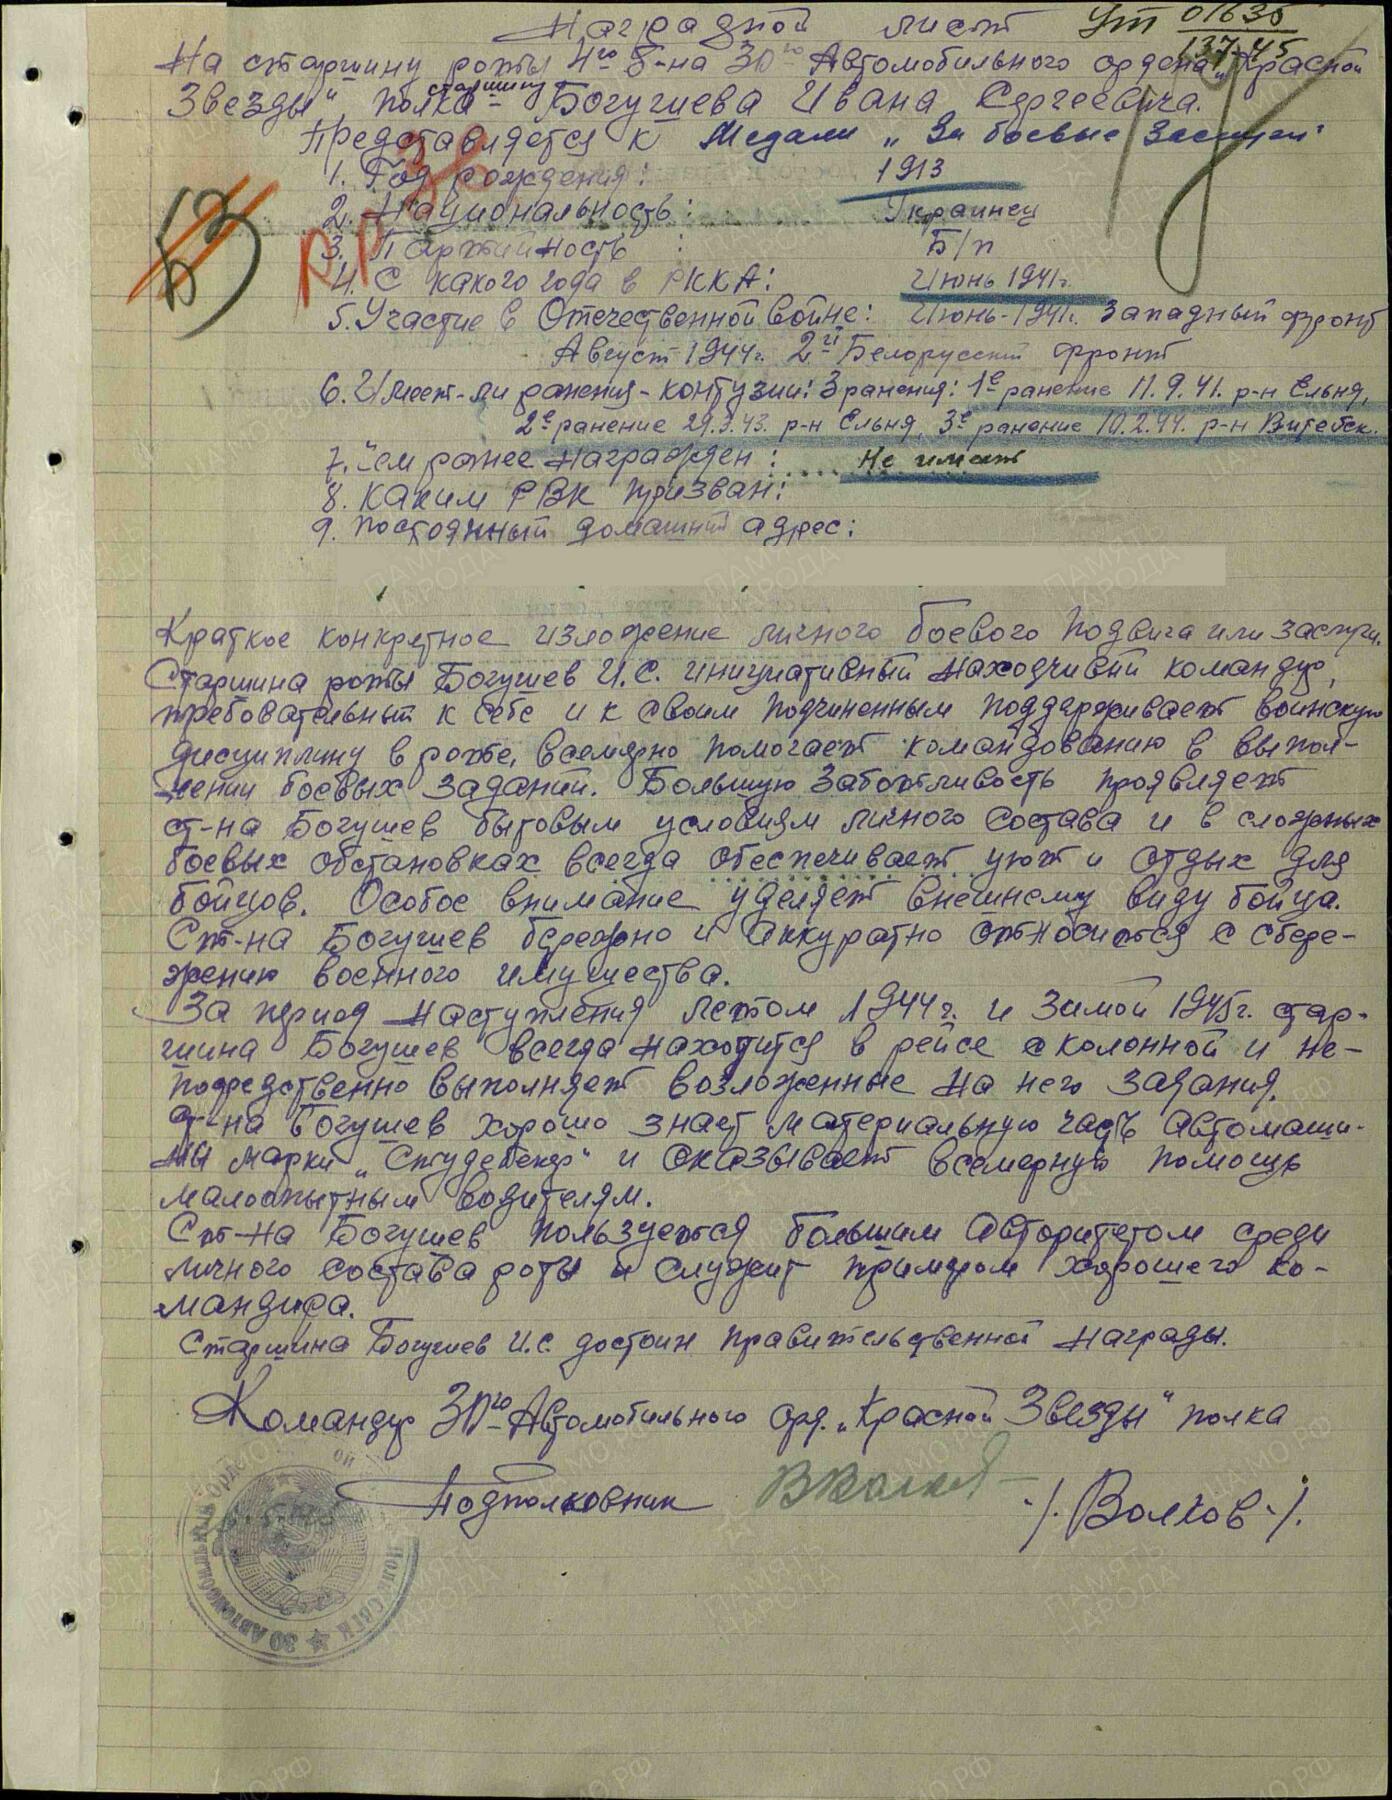 Наградной лист
Ут 01635
137.45
На старшину роты 4го б-на 30го Автомобильного ордена „Красной
Звезды" полка старшину Богушева Ивана Сергеевича.
Представляется к Медали „За боевые заслуги"
53
1. Год рождения: 1913
2. Национальность: Украинец
3. Партийность : Б/п
4. С какого года в РККА: Июнь 1941г.
5. Участие в Отечественной войне: Июнь-1941г. Западный фронт
Август 1944г. 2й Белорусский фронт
6. Имеет-ли ранения-контузии: 3 ранения: 1е ранение 11.9.41. р-н Ельня,
2е ранение 29.3.43. р-н Ельня, 3е ранение 10.2.44. р-н Витебск.
7. Чем ранее награжден: Не имеет
8. Каким РВК призван:
9. Постоянный домашний адрес:
Краткое конкретное изложение личного боевого подвига или заслуги.
Старшина роты Богушев И.С. инициативный находчивый командир,
требовательный к себе и к своим подчиненным поддерживает воинскую
дисциплину в роте, всемерно помогает командованию в выпол-
нении боевых заданий. Большую заботливость проявляет
ст-на Богушев бытовым условиям личного состава и в сложных
боевых обстановках всегда обеспечивает уют и отдых для
бойцов. Особое внимание уделяет внешнему виду бойца.
Ст-на Богушев бережно и аккуратно относится с сбере-
жению военного имущества.
За период наступления летом 1944г. и зимой 1945г. стар-
шина Богушев всегда находится в рейсе с колонной и не-
посредственно выполняет возложенные на него задания.
ст-на Богушев хорошо знает материальную часть автомаши-
ны марки „Студебекер" и оказывает всемерную помощь
малоопытным водителям.
Ст-на Богушев пользуется большим авторитетом среди
личного состава роты и служит примером хорошего ко-
мандира.
Старшина Богушев И.С. достоин правительственной награды.
Командир 30го Автомобильного орд. „Красной Звезды" полка
Подполковник ВВолков /. Волков ./.
30 Автомобильный Орде ой Полк СВГК